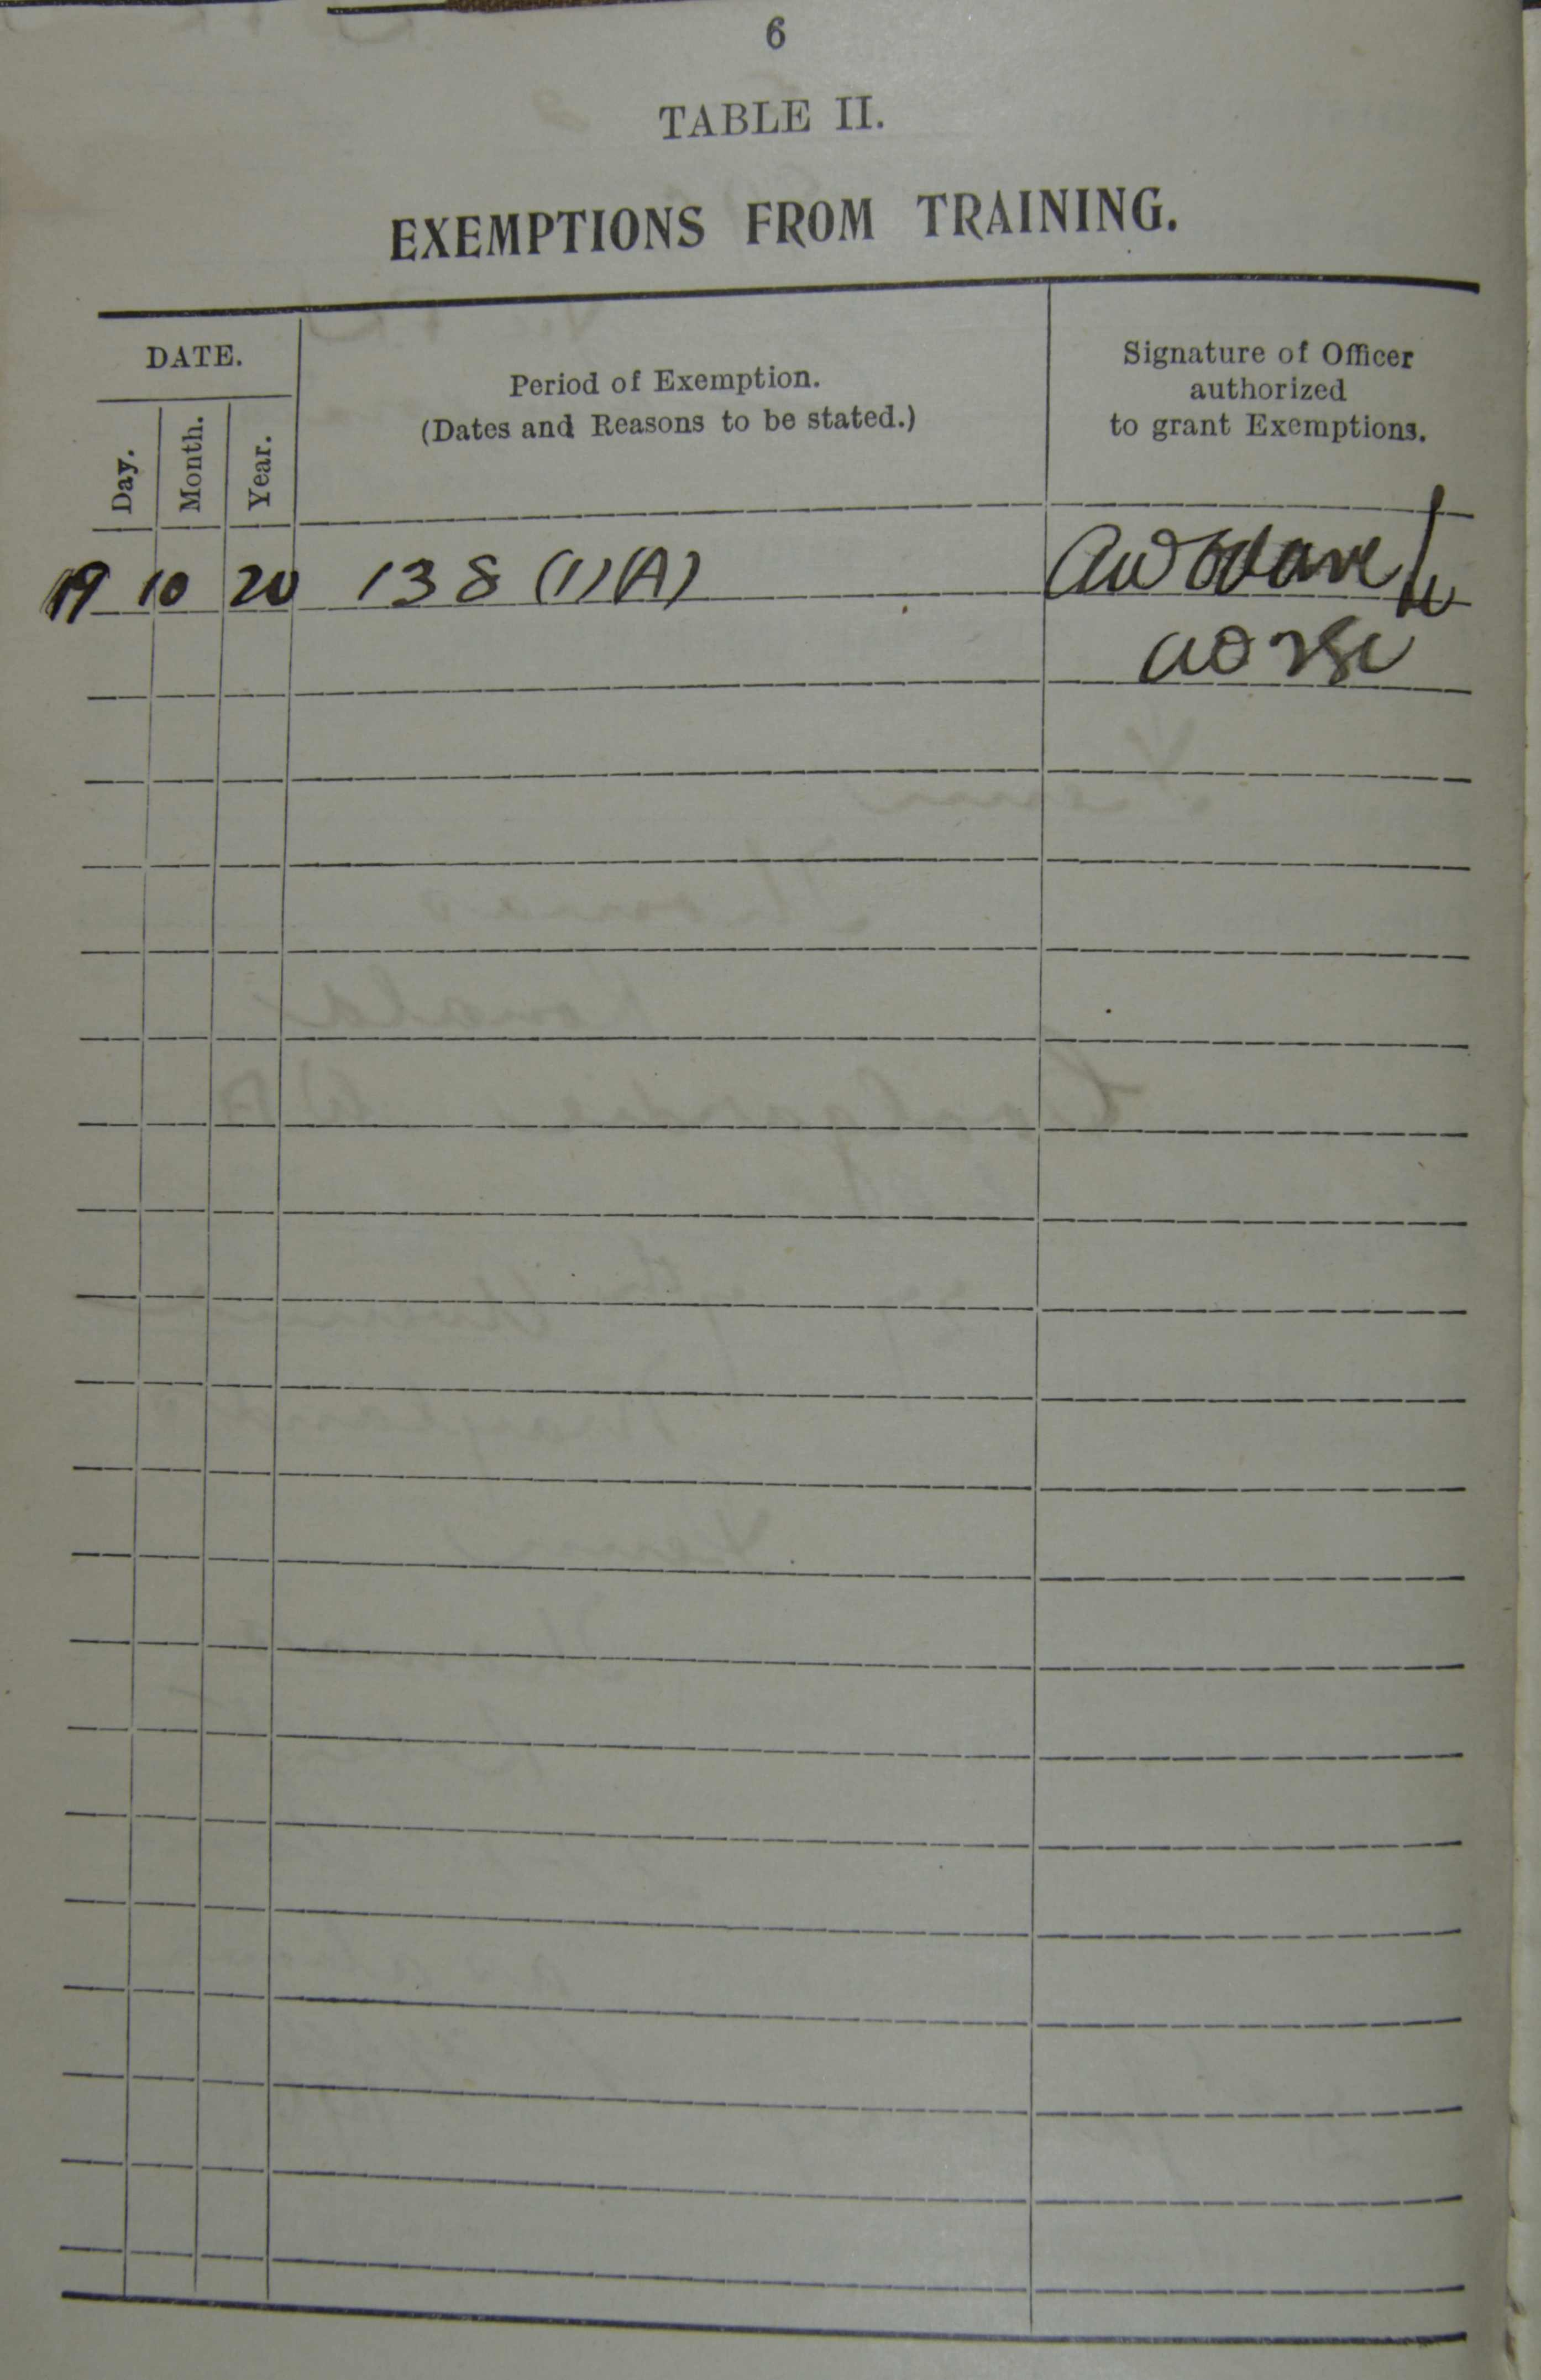 6
TABLE II.
EXEMPTIONS FROM TRAINING.
DATE.
Day. Month. Year.
Period of Exemption.
(Dates and Reasons to be stated.)
Signature of Officer
authorized
to grant Exemptions.
19 10 20 138 (1)(A)